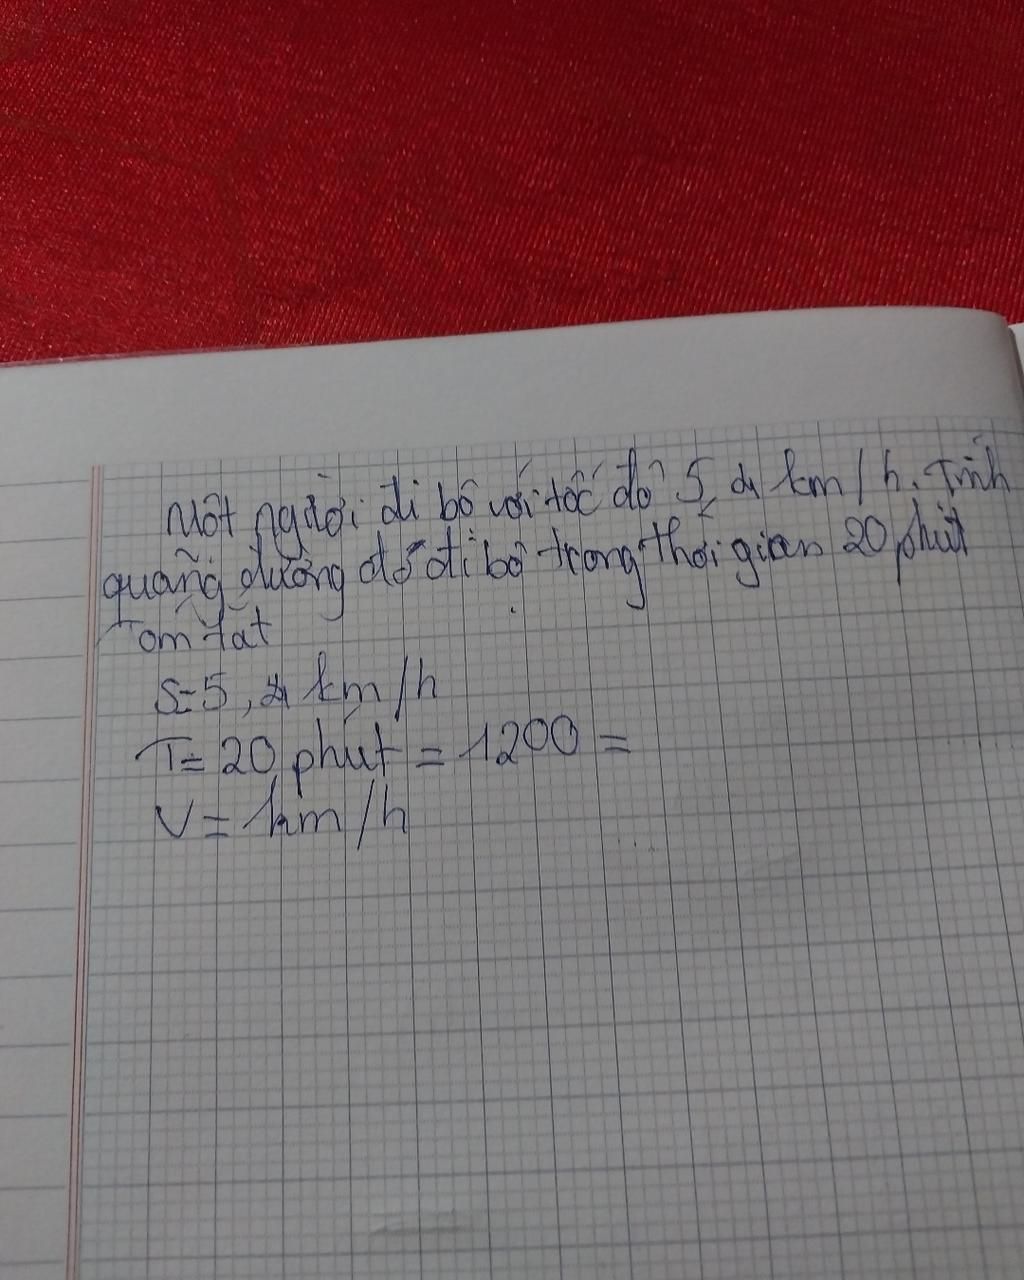 Một người đi bộ với tốc độ 5,4 km/h. Tính
quãng đường đó đi bộ trong thời gian 20 phút
Tóm tắt
S=5,4 km/h
T= 20 phút = 1200 =
V= km/h